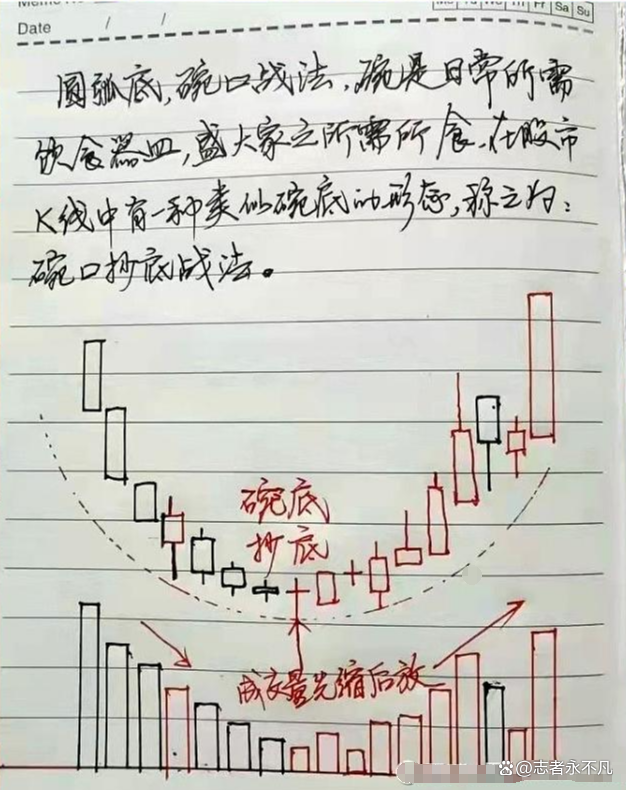 Date / /
Mo Tu We Th Fr Sa Su
圆弧底，碗口战法，碗是日常所需
饮食器皿，盛大家之所需所食、在股市
K线中有一种类似碗底的形态，称之为：
碗口抄底战法。
碗底
抄底
成交量先缩后放
@志者永不凡